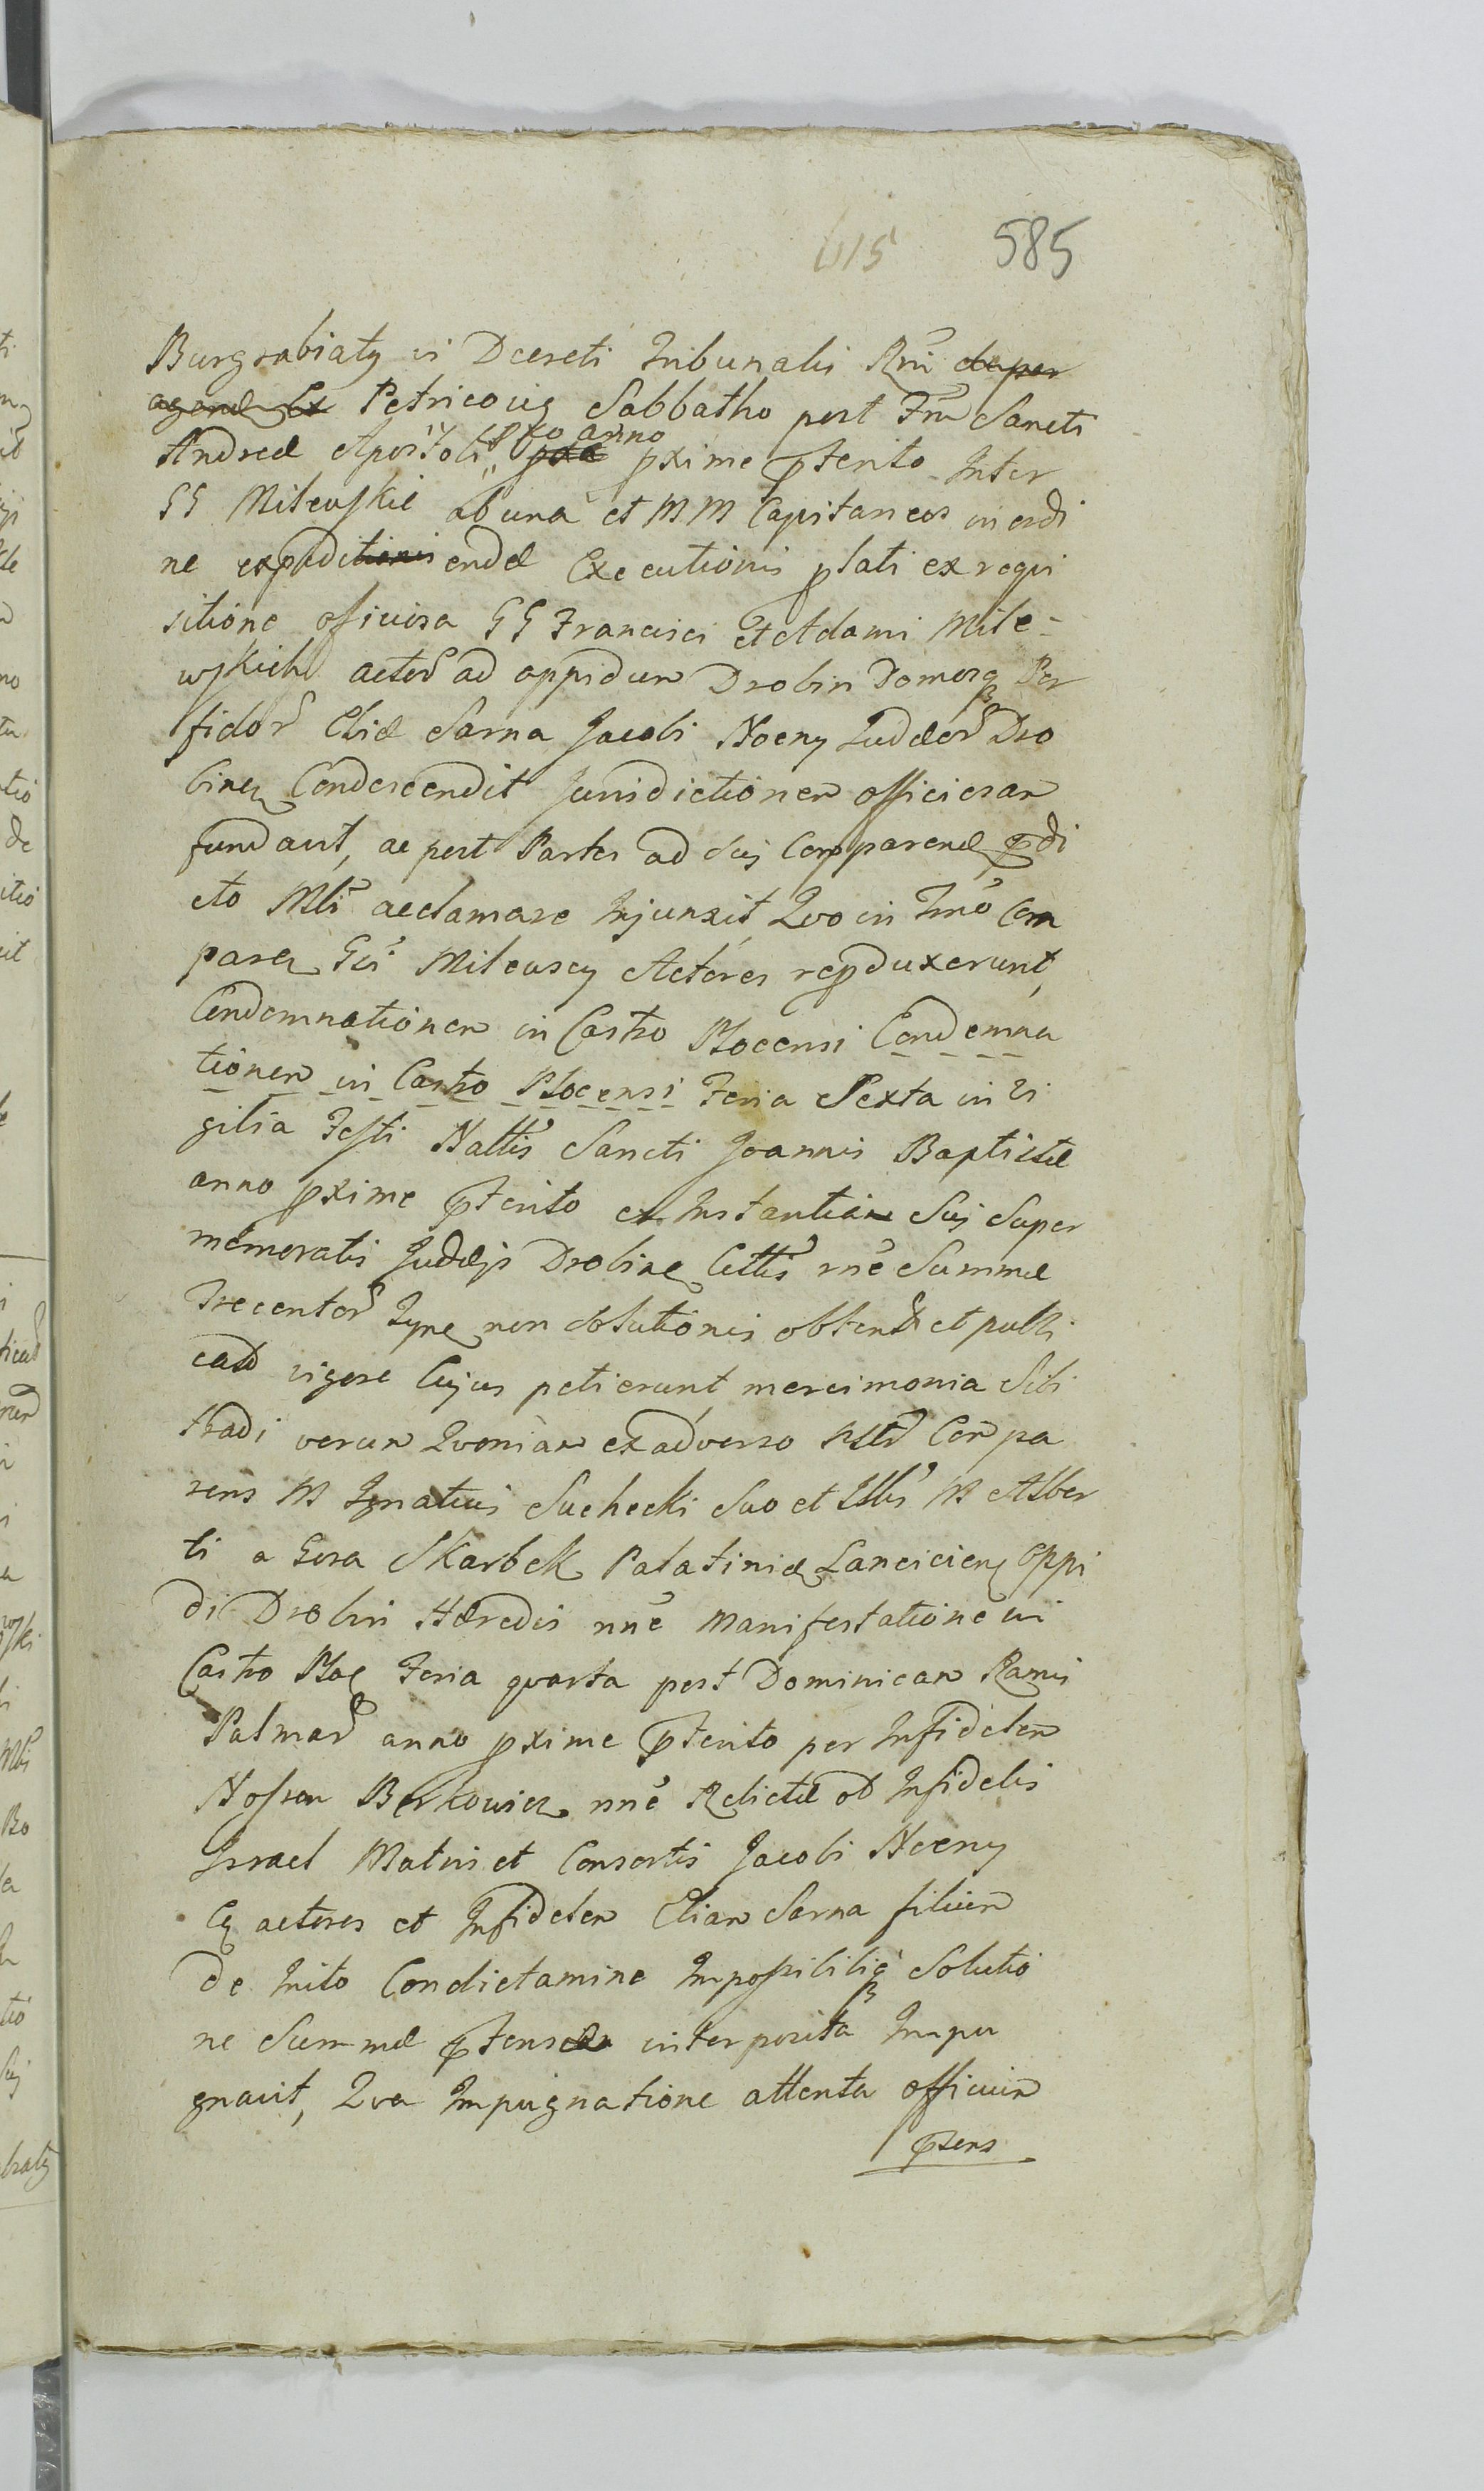 615 585
Burgrabiaty vi Decreti Tribunalis Rni
Petricoviæ Sabbatho post Fm Sancti
Andreæ Apostoli anno pxime pterito Inter
GG Milewskie ab una et MM Capitaneos in ordi
ne expeditionis endæ Executionis plati ex requi
sitione officiosa GG Francisci et Adami Mile-
wskich actor ad oppidum Drobin Domosq Per
fidor Eliæ Sarna Jacobi Noeny Judæor Dro
binen Condescendit Jurisdictionem officiosam
fundavit, ac post Partes ad Sui Comparend pdi
cto Mli acclamare Injunxit, Quo in Tmo Com
paren Gsi Milewscy Actores repduxerunt,
Condemnationem in Castro Plocensi Condemna
tionem in Castro Plocensi Feria Sexta in Vi
gilia Festi Nattis Sancti Joannis Baptistæ
anno pxime pterito ex Instantia Sui Super
memoratis Judæis Drobinen Cittis rne Summæ
Trecentor Tympf non solutionis obtent et publi
cat vigore Cujus petierunt mercimonia Sibi
tradi verum Quoniam ex adverso Com pa
rens M Ignatius Suchecki Suo et Illis M Alber
ti a Gora Skarbek Palatinidæ Lanciciens Oppi
di Drobin Hæredis nne Manifestatione in
Castro Ploc Feria quarta post Dominicam Ramis
Palmar anno pxime pterito per Infidelem
Nossen Berkowicz nne Relictæ ol Infidelis
Israel Matris et Consortis Jacobi Noeny
Cæ actores et Infidelem Eliam Sarna filium
de Inito Condictamine Impossibiliq Solutio
ne Summæ ptensæ interposita Impu
gnavit, Qua Impugnatione attenta officium
ptens